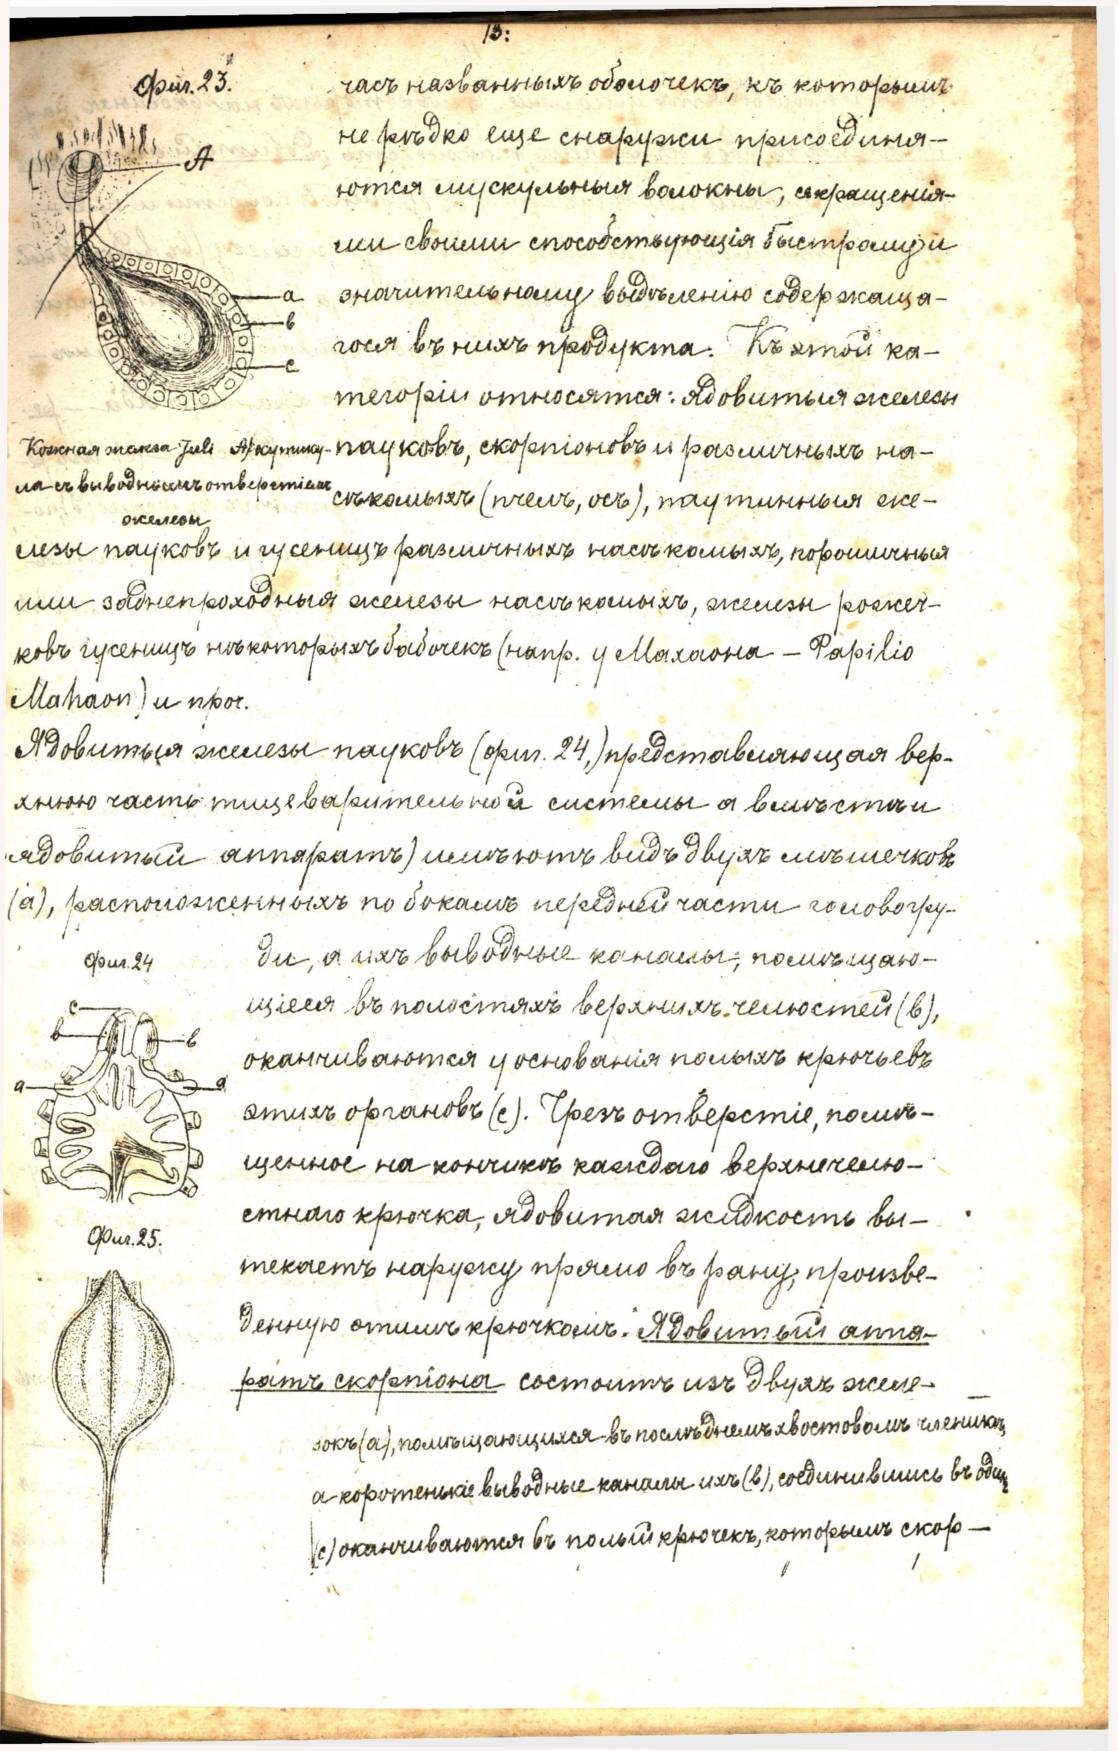 13:
Фиг. 23.
А
а
в
с
Кожная железа Juli А) кутику-
ла съ выводнымъ отверстіемъ
железы
часъ названныхъ оболочекъ, къ которымъ
не рѣдко еще снаружи присоединя-
ются мускульныя волокны, сокращенія-
ми своими способствующія быстрому и
значительному выдѣленію содержаща-
гося въ нихъ продукта. Къ этой ка-
тегоріи относятся: ядовитыя железы
пауковъ, скорпіоновъ и различныхъ на-
сѣкомыхъ (пчелъ, осъ), паутинныя же-
лезы пауковъ и гусеницъ различныхъ насѣкомыхъ, порошичныя
или заднепроходныя железы насѣкомыхъ, железы рожеч-
ковъ гусеницъ нѣкоторыхъ бабочекъ (напр. у Махаона – Papilio
Mahaon) и проч.
Ядовитыя железы пауковъ (фиг. 24,) представляющая вер-
хнюю часть пищеварительной системы а вмѣстѣ и
ядовитый аппаратъ) имѣютъ видъ двухъ мѣшечковъ
(а), расположенныхъ по бокамъ передней части головогру-
Фиг. 24
с
в
в
а
а
ди, а ихъ выводные каналы, помѣщаю-
щіеся въ полостяхъ верхнихъ челюстей (в),
оканчиваются у основанія полыхъ крючьевъ
этихъ органовъ (с). Чрезъ отверстіе, помѣ-
щенное на кончикѣ каждаго верхнечелю-
стнаго крючка, ядовитая жидкость вы-
текаетъ наружу прямо въ рану, произве-
денную этимъ крючкомъ. Ядовитый аппа-
ратъ скорпіона состоитъ изъ двухъ желе-
Фиг. 25.
зокъ (а), помѣщающихся въ послѣднемъ хвостовомъ членикѣ,
а коротенькіе выводные каналы ихъ (в), соединившись въ одинъ
(с) оканчиваются въ полый крючекъ, которымъ скор-